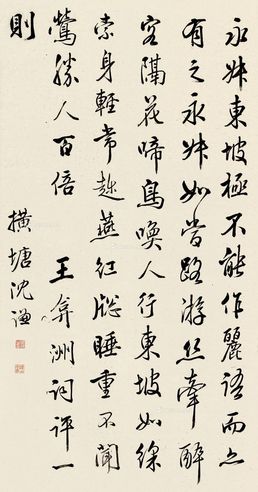 永叔東坡極不能作麗語而亦
有之永叔如當路游絲牽醉
客隔花啼鳥喚人行東坡如綵
索身輕常趁燕紅牕睡重不聞
鶯勝人百倍 王弇洲詞評一
則
橫塘沈